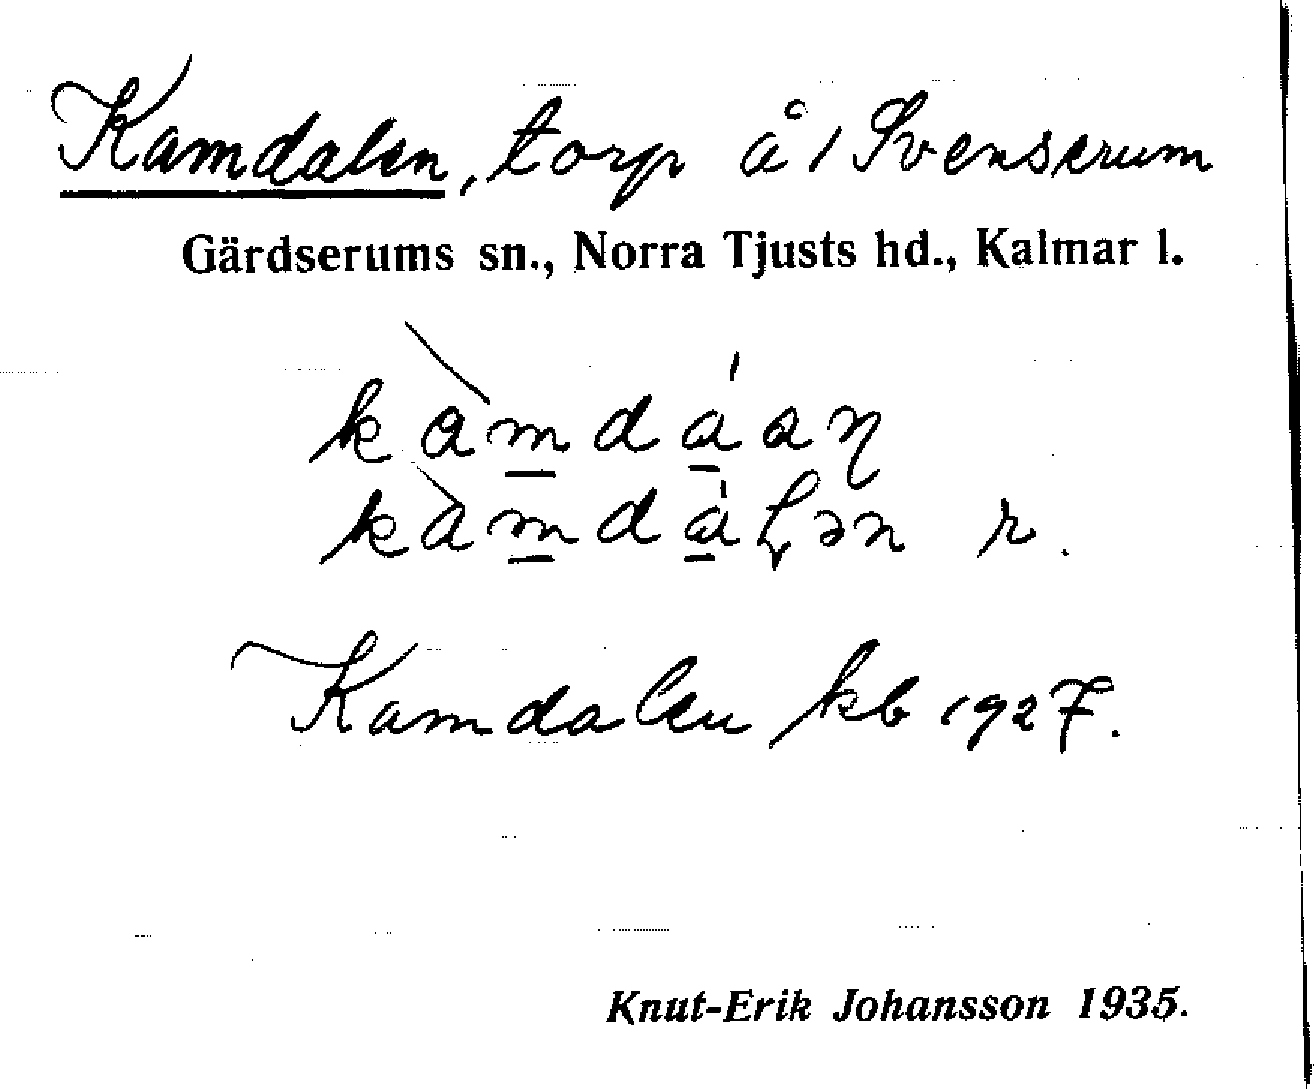 Kamdalen, torp å 1 Svenserum
Gärdserums sn., Norra Tjusts hd., Kalmar l.
r.
Kamdalen kb 1927.
Knut-Erik Johansson 1935.